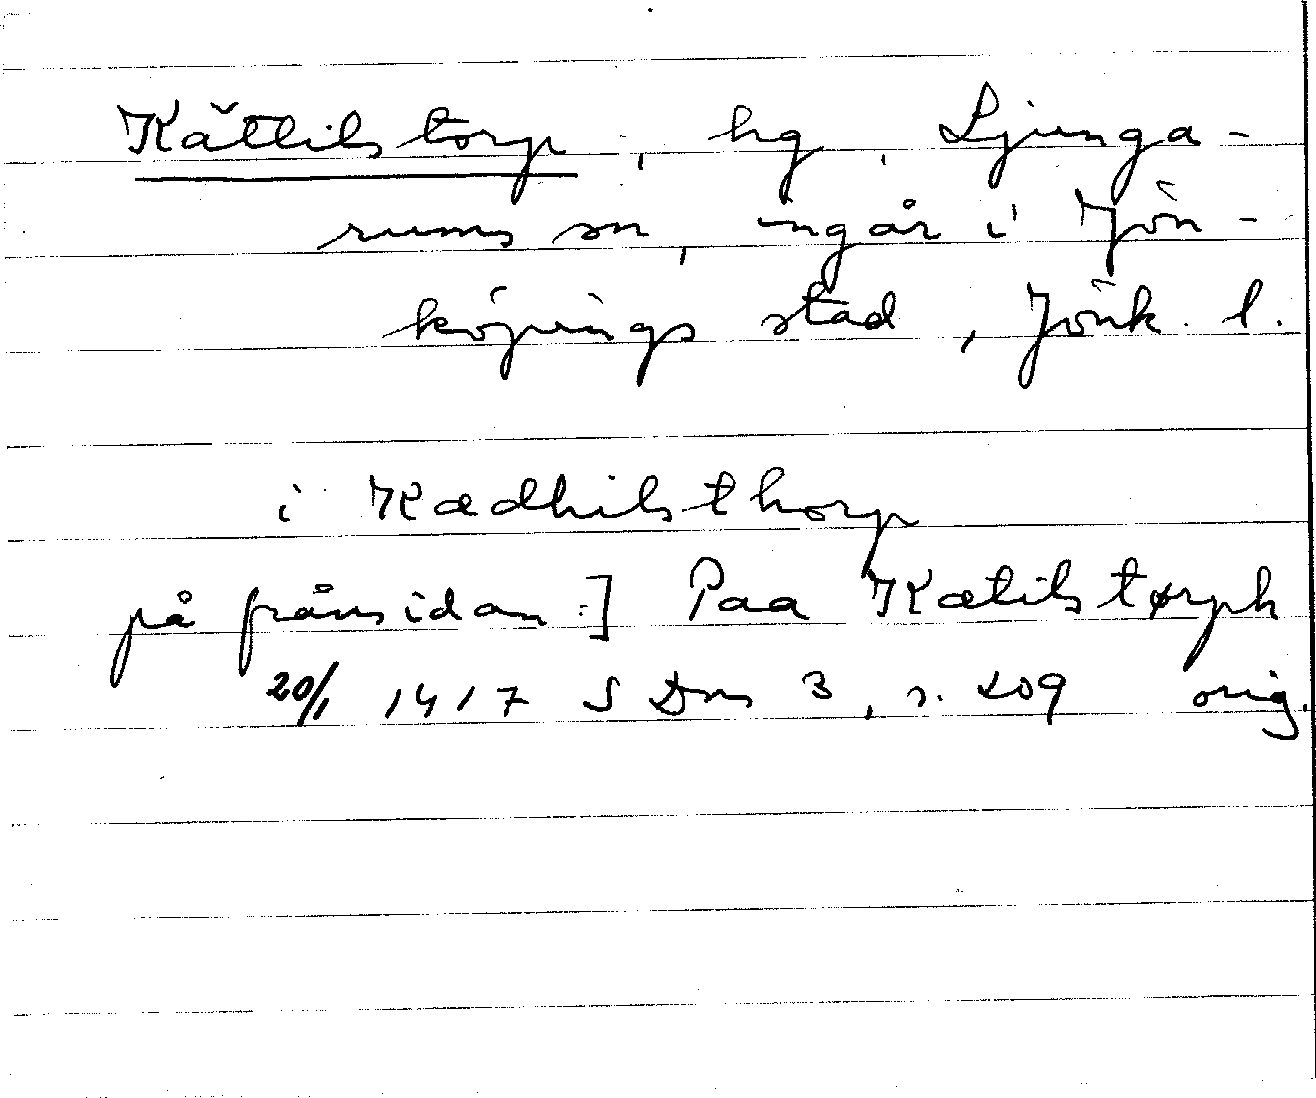 Kättilstorp, hg, Ljunga-
rums sn, ingår i Jön-
köpings stad, Jönk. l.
i Kædhilsthorp
på frånsidan:] Paa Kætilstørph
20/1 1417 SDns 3, s. 209 orig.